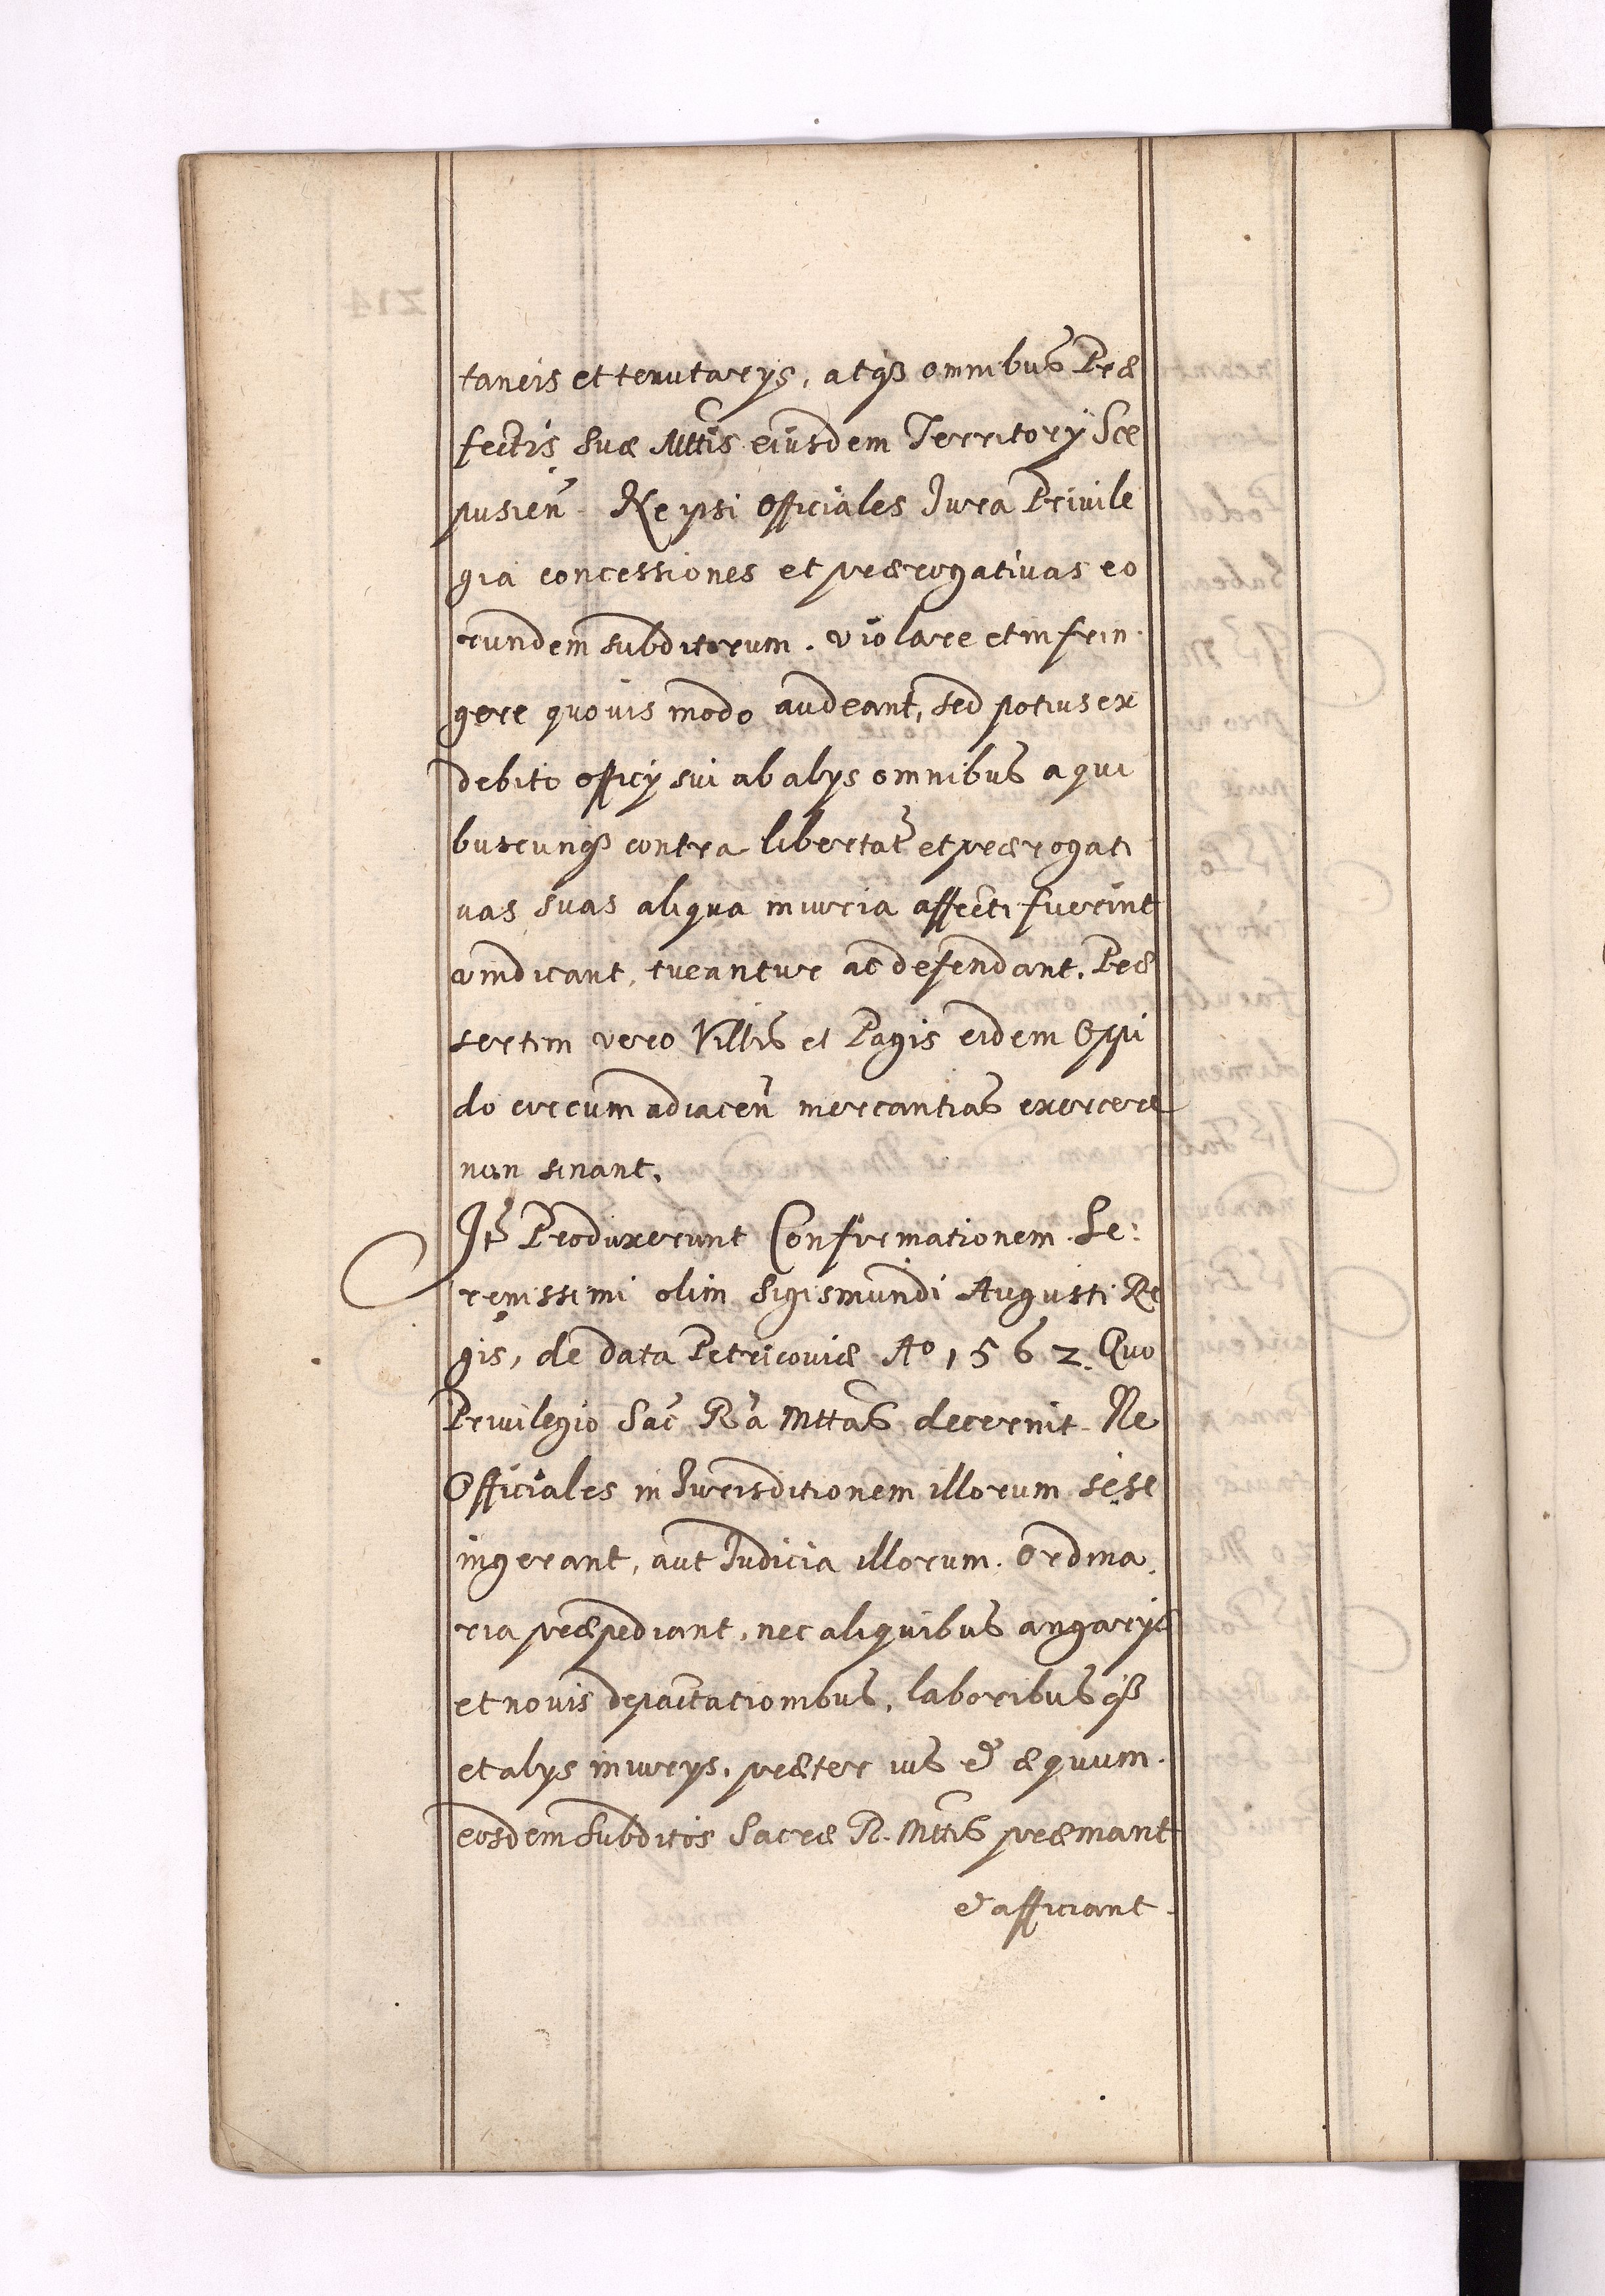 taneis et tenutarys, atqȝ omnibus Præ
fectis suæ Mttis eiusdem Territory Sce
pusien̄. Ne ipsi Officiales Jura Privile
gia concessiones et prærogativas eo
rundem subditorum. violare et infrin.
gere quovis modo audeant, sed potius ex
debito officy sui ab alys omnibus a qui
buscunqȝ contra libertat̄ et prærogati
uas suas aliqua iniuria affecti fuerint
vindicant, tueantur ac defendant. Præ
sertim vero Villis et Pagis eidem Oppi
do circumadiacen̄ mercantias exercere
non sinant.
Jt̄ Produxerunt Confirmationem Se:
renissimi olim Sigismundi Augusti Re
gis, de data Petricoviæ Ao 1562. Quo
Privilegio Sac̄ R̄a Mttas decernit Ne
Officiales in Jurisditionem illorum sese
ingerant, aut Judicia illorum. Ordina.
ria præpediant, nec aliquibus angarys
et novis depactationibus, laboribusqȝ
et alys iniurys, præter ius et æquum.
eosdem subditos Sacræ R. Mttis præmant
et afficiant.